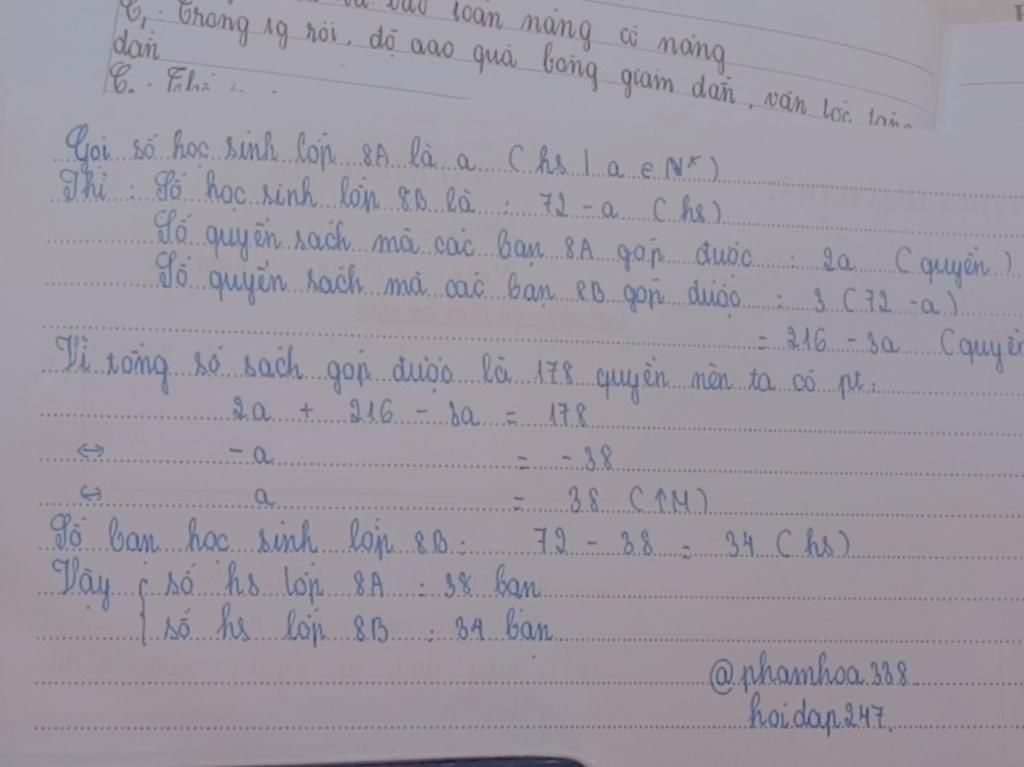 và bảo toàn năng cơ năng
C₁: Trong sg rồi, độ cao quả bóng giảm dần, vân tốc tăng
dần
C₂:
Gọi số học sinh lớp 8A là a (hs | a ∈ N*)
Thì : Số học sinh lớp 8B là : 72 - a (hs)
Số quyển sách mà các bạn 8A góp được : 2a (quyển)
Số quyển sách mà các bạn 8B góp được : 3 (72 - a)
= 216 - 3a (quyển
Vì tổng số sách góp được là 178 quyển nên ta có pt:
2a + 216 - 3a = 178
⇔ - a = - 38
⇔ a = 38 (TM)
Số bạn học sinh lớp 8B: 72 - 38 = 34 (hs)
Vậy { số hs lớp 8A : 38 bạn
số hs lớp 8B : 34 bạn
@phamhoa338
hoidap247.